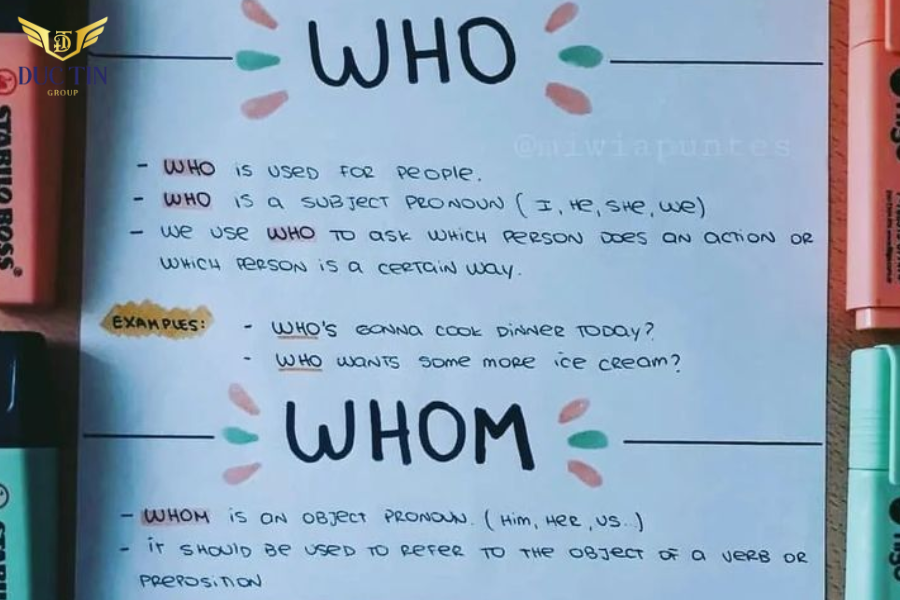 DUC TIN
GROUP
WHO
@miwiapuntes
- WHO is used for people.
- WHO is a subject pronoun (I, He, She, We)
- We use WHO to ask which person does an action or
which person is a certain way.
Examples:
- WHO'S gonna cook dinner today?
- WHO wants some more ice cream?
WHOM
- WHOM is an object pronoun. (Him, Her, us..)
- It should be used to refer to the object of a verb or
preposition
STABILO BOSS®